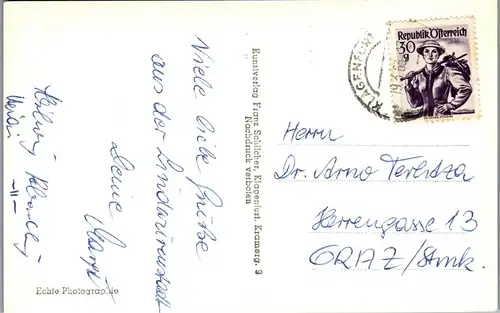 Viele liebe Grüße
aus der Lindwurmstadt
Deine
Echte Photographie
Kunstverlag Franz Schilcher, Klagenfurt, Kramerg. 9
Nachdruck verboten
KLAGENFURT
Republik Österreich
30
g
Herrn
Dr. Arno Terlitza
Herrengasse 13
GRAZ/Stmk.